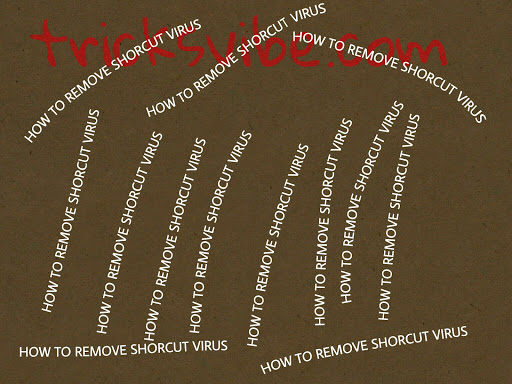 tricksvibe.com
HOW TO REMOVE SHORCUT VIRUS
HOW TO REMOVE SHORCUT VIRUS
HOW TO REMOVE SHORCUT VIRUS
HOW TO REMOVE SHORCUT VIRUS
HOW TO REMOVE SHORCUT VIRUS
HOW TO REMOVE SHORCUT VIRUS
HOW TO REMOVE SHORCUT VIRUS
HOW TO REMOVE SHORCUT VIRUS
HOW TO REMOVE SHORCUT VIRUS
HOW TO REMOVE SHORCUT VIRUS
HOW TO REMOVE SHORCUT VIRUS
HOW TO REMOVE SHORCUT VIRUS
HOW TO REMOVE SHORCUT VIRUS